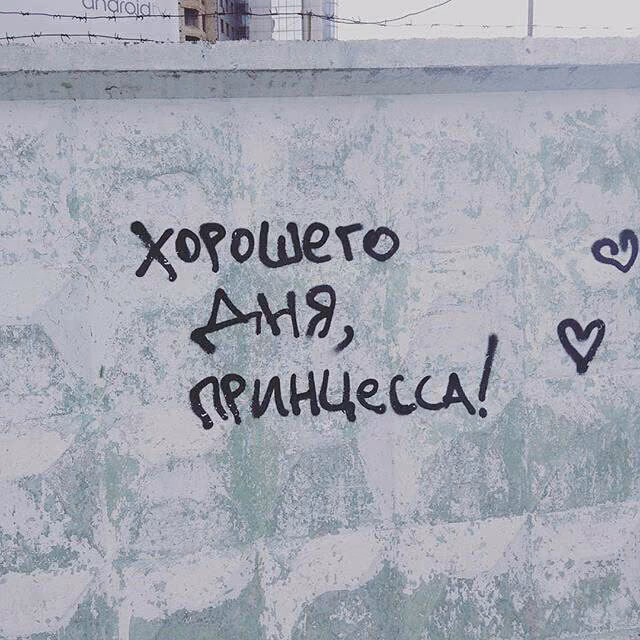 android
Хорошего
дня,
принцесса!